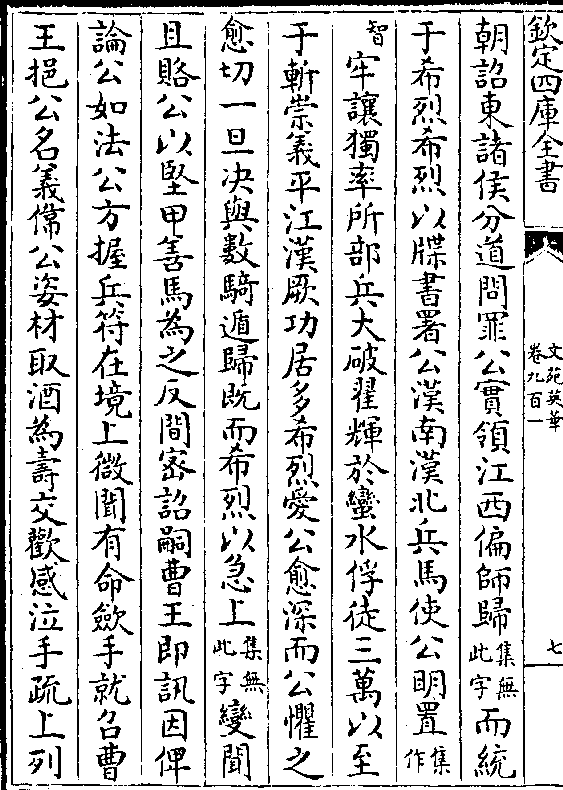 欽定四庫全書
文苑英華
卷九百一
七
朝詔東諸侯分道問罪公實領江西偏師歸集無此字而統
于希烈希烈以牒書署公漢南漢北兵馬使公明置集作
智牢讓獨率所部兵大破翟輝於蠻水俘徒三萬以至
于斬崇義平江漢厥功居多希烈愛公愈深而公懼之
愈切一旦决與數騎遁歸既而希烈以急上集無此字變聞
且賂公以堅甲善馬為之反間宻詔嗣曹王即訊因俾
論公如法公方握兵符在境上微聞有命歛手就召曹
王挹公名義偉公姿材取酒為壽交歡感泣手疏上列